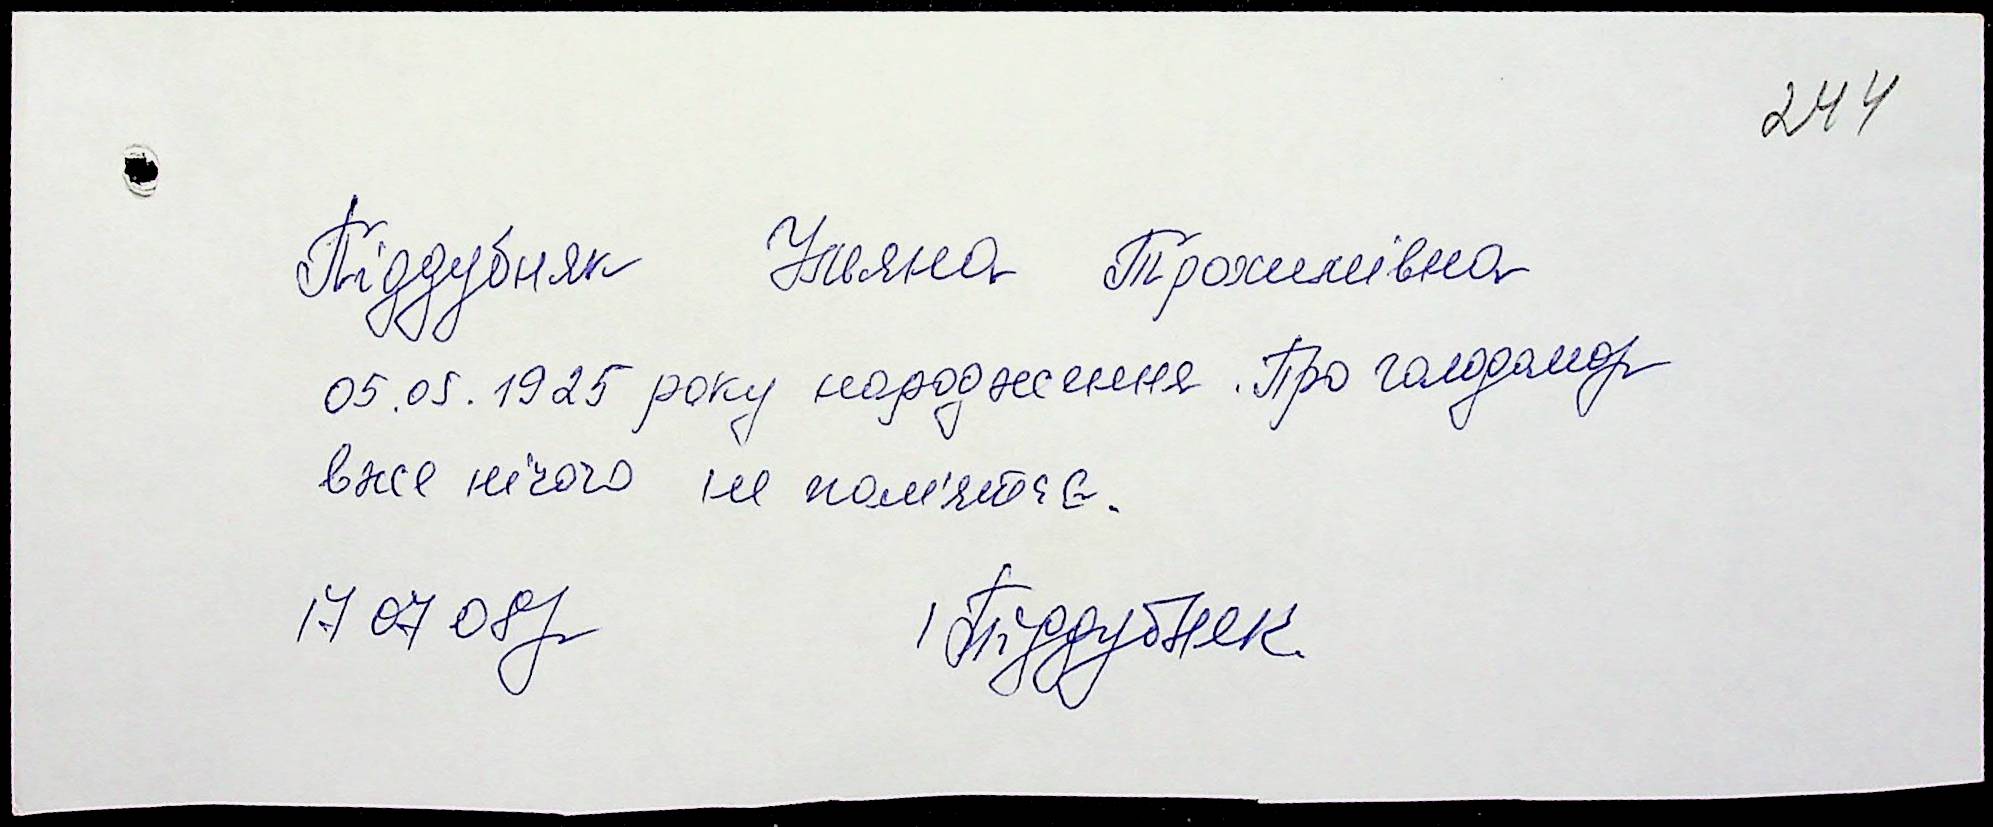 244
Піддубняк Уляна Трохимівна
05.05.1925 року народження. Про голодомор
вже нічого не пам'ятає.
17 07 08р
Піддубняк.